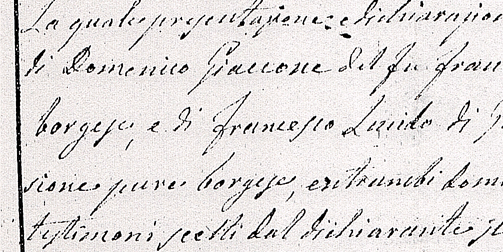 La quale presentazione, e dichiarazion
di Domenico Giaccone del fu Fran
borgese, e di Francesco Lauda di
sione pure borgese, entrambi dom
testimoni scelti dal dichiarante